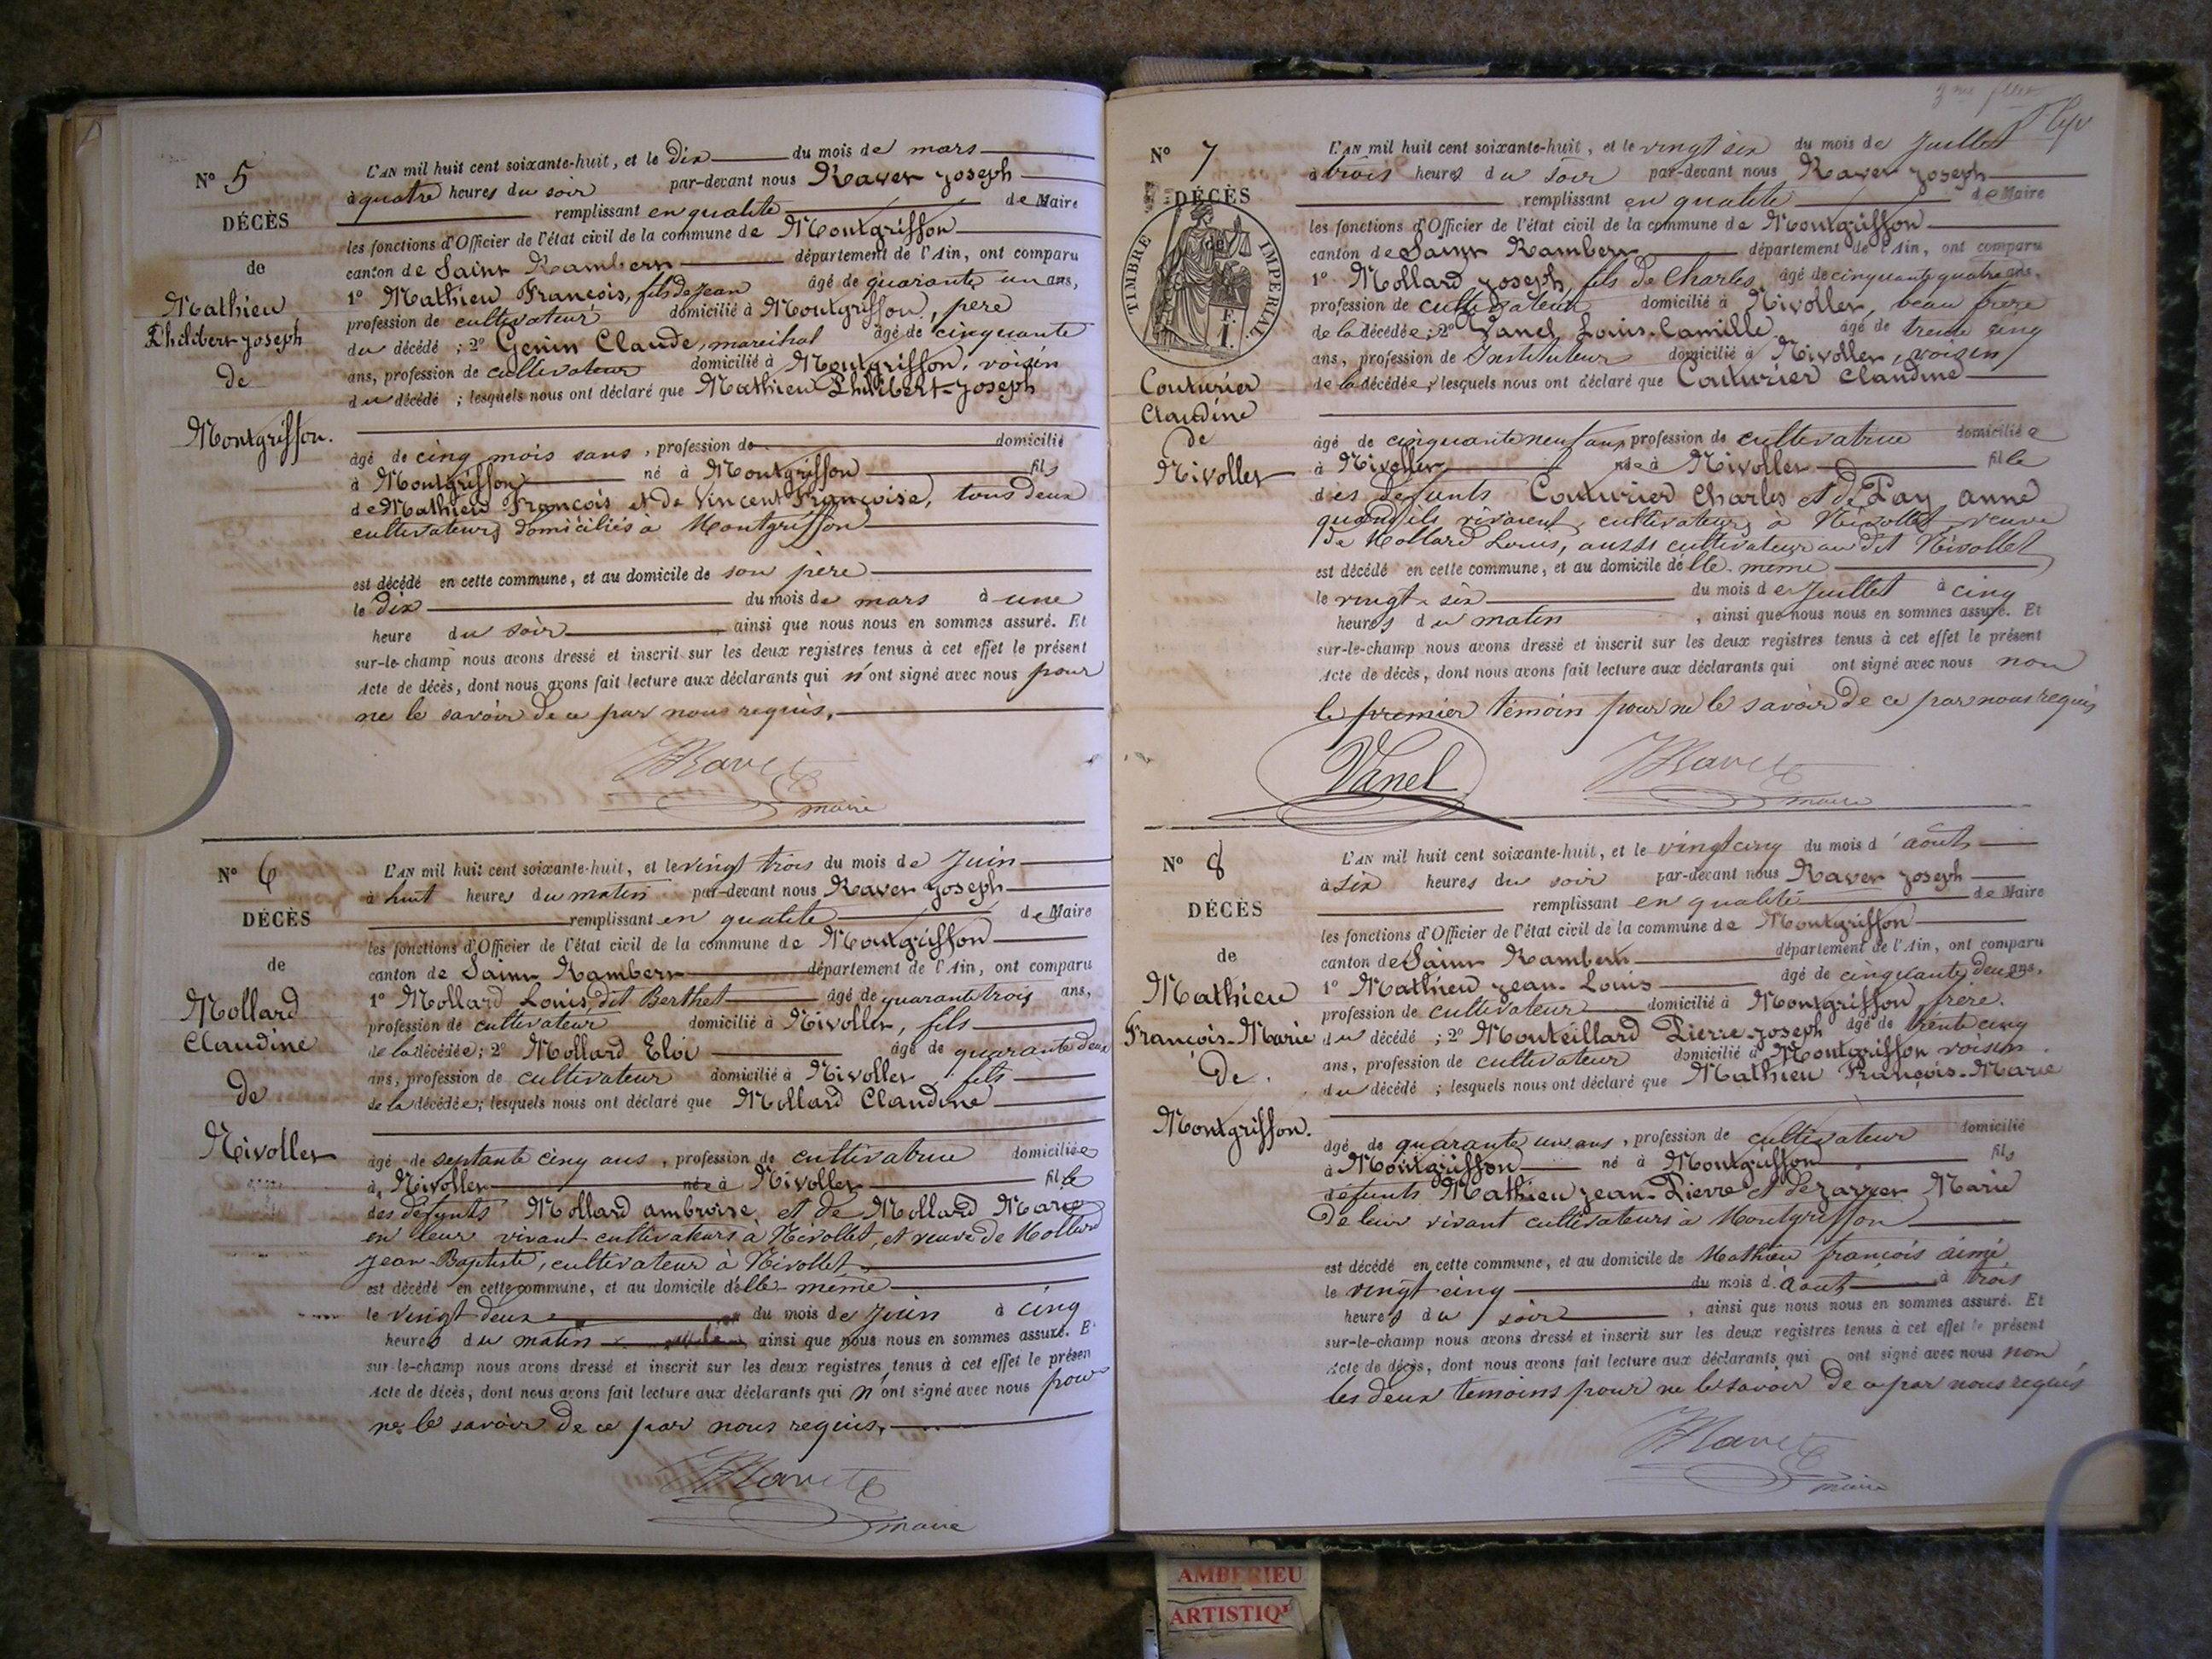 N° 5
DÉCÈS
de
Mathieu
Philibert-joseph
de
Montgriffon.
L'AN mil huit cent soixante-huit, et le dix du mois de mars
à quatre heures du soir par-devant nous Ravet joseph
remplissant en qualité de Maire
les fonctions d'Officier de l'état civil de la commune de Montgriffon
canton de Saint Rambert département de l'Ain, ont comparu
1° Mathieu François, fils de jean âgé de quarante un ans,
profession de cultivateur domicilié à Montgriffon, père
du décédé ; 2° Genin Claude, mareichal âgé de cinquante
ans, profession de cultivateur domicilié à Montgriffon, voisin
du décédé ; lesquels nous ont déclaré que Mathieu Philibert-joseph
âgé de cinq mois sans, profession de domicilié
à Montgriffon né à Montgriffon fils
de Mathieu François et de Vincent Françoise, tous deux
cultivateurs domiciliés à Montgriffon
est décédé en cette commune, et au domicile de son père
le dix du mois de mars à une
heure du soir ainsi que nous nous en sommes assuré. Et
sur-le-champ nous avons dressé et inscrit sur les deux registres tenus à cet effet le présent
Acte de décès, dont nous avons fait lecture aux déclarants qui n'ont signé avec nous pour
ne le savoir de ce par nous requis.
Ravet
maire
N° 6
DÉCÈS
de
Mollard
Claudine
de
Nivollet
L'AN mil huit cent soixante-huit, et le vingt trois du mois de Juin
à huit heures du matin par-devant nous Ravet joseph
remplissant en qualité de Maire
les fonctions d'Officier de l'état civil de la commune de Montgriffon
canton de Saint Rambert département de l'Ain, ont comparu
1° Mollard Louis, dit Berthet âgé de quarante trois ans,
profession de cultivateur domicilié à Nivollet, fils
de la décédée; 2° Mollard Eloi âgé de quarante deux
ans, profession de cultivateur domicilié à Nivollet fils
de la décédée; lesquels nous ont déclaré que Mollard Claudine
âgé de septante cinq ans, profession de cultivatrice domiciliée
à Nivollet née à Nivollet fille
des défunts Mollard ambroise et de Mollard Marie
en leur vivant cultivateurs à Nivollet, et veuve de Mollard
jean-Baptiste, cultivateur à Nivollet
est décédé en cette commune, et au domicile d'elle-même
le vingt deux du mois de Juin à cinq
heures du matin ainsi que nous nous en sommes assuré. E
sur-le-champ nous avons dressé et inscrit sur les deux registres tenus à cet effet le présen
Acte de décès, dont nous avons fait lecture aux déclarants qui n'ont signé avec nous pour
ne le savoir de ce par nous requis.
Ravet
maire
N° 7
DÉCÈS
de
TIMBRE IMPERIAL
F.
1.
Couturier
Claudine
de
Nivollet
L'AN mil huit cent soixante-huit, et le vingt six du mois de Juillet
à trois heures du soir par-devant nous Ravet joseph
remplissant en qualité de Maire
les fonctions d'Officier de l'état civil de la commune de Montgriffon
canton de Saint Rambert département de l'Ain, ont comparu
1° Mollard joseph, fils de Charles, âgé de cinquante quatre ans.
profession de cultivateur domicilié à Nivollet, beau frère
de la décédée; 2° Vanel Louis-Camille âgé de trente cinq
ans, profession de Instituteur domicilié à Nivollet, voisin
de la décédée, lesquels nous ont déclaré que Couturier Claudine
âgé de cinquante neuf ans, profession de cultivatrice domiciliée
à Nivollet née à Nivollet fille
des défunts Couturier Charles et de Pay anne
quand ils vivaient cultivateurs à Nivollet, veuve
de Mollard Louis, aussi cultivateur au dit Nivollet
est décédé en cette commune, et au domicile d'elle-même
le vingt six du mois de Juillet à cinq
heures du matin, ainsi que nous nous en sommes assuré. Et
sur-le-champ nous avons dressé et inscrit sur les deux registres tenus à cet effet le présent
Acte de décès, dont nous avons fait lecture aux déclarants qui ont signé avec nous non
le premier témoin pour ne le savoir de ce par nous requis
Vanel Ravet
maire
N° 8
DÉCÈS
de
Mathieu
François-Marie
de
Montgriffon.
L'AN mil huit cent soixante-huit, et le vingt cinq du mois d'août
à six heures du soir par-devant nous Ravet joseph
remplissant en qualité de Maire
les fonctions d'Officier de l'état civil de la commune de Montgriffon
canton de Saint Rambert département de l'Ain, ont comparu
1° Mathieu jean-Louis âgé de cinquante deux ans.
profession de cultivateur domicilié à Montgriffon, frère.
du décédé ; 2° Monteillard Pierre-joseph âgé de trente cinq
ans, profession de cultivateur domicilié à Montgriffon voisin
du décédé ; lesquels nous ont déclaré que Mathieu François-Marie
âgé de quarante un ans, profession de cultivateur domicilié
à Montgriffon né à Montgriffon fils
défunts Mathieu jean-Pierre et de Marie
de leur vivant cultivateurs à Montgriffon
est décédé en cette commune, et au domicile de Mathieu françois aimé
le vingt cinq du mois d'Aout à trois
heures du soir, ainsi que nous nous en sommes assuré. Et
sur-le-champ nous avons dressé et inscrit sur les deux registres tenus à cet effet le présent
Acte de décès, dont nous avons fait lecture aux déclarants qui ont signé avec nous non
les deux témoins pour ne le savoir de ce par nous requis
Ravet
maire
AMBERIEU
ARTISTIQ